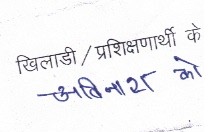 खिलाडी / प्रशिक्षणार्थी के
अविनाश को